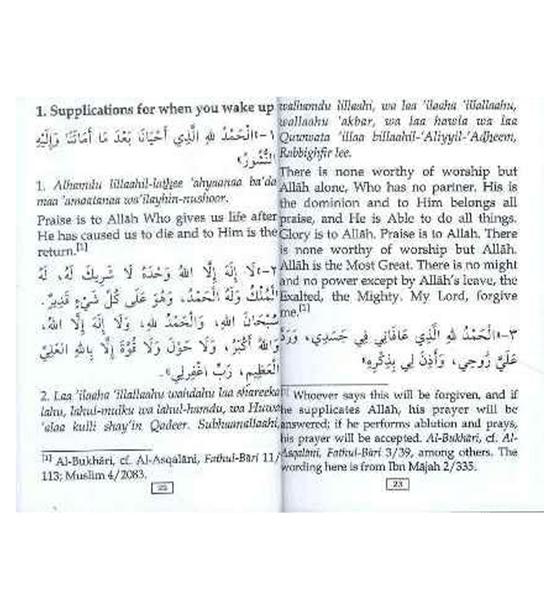 1. Supplications for when you wake up
١-«الْحَمْدُ لِلَّهِ الَّذِي أَحْيَانَا بَعْدَ مَا أَمَاتَنَا وَإِلَيْهِ
النُّشُورُ»
1. Alhamdu lillaahil-lathee 'ahyaanaa ba'da
maa 'amaatanaa wa'ilayhin-nushoor.
Praise is to Allâh Who gives us life after
He has caused us to die and to Him is the
return.[1]
٢-«لَا إِلَهَ إِلَّا اللَّهُ وَحْدَهُ لَا شَرِيكَ لَهُ، لَهُ
الْمُلْكُ وَلَهُ الْحَمْدُ، وَهُوَ عَلَى كُلِّ شَيْءٍ قَدِيرٌ.
سُبْحَانَ اللَّهِ، وَالْحَمْدُ لِلَّهِ، وَلَا إِلَهَ إِلَّا اللَّهُ،
وَاللَّهُ أَكْبَرُ، وَلَا حَوْلَ وَلَا قُوَّةَ إِلَّا بِاللَّهِ الْعَلِيِّ
الْعَظِيمِ، رَبِّ اغْفِرْ لِي».
2. Laa 'ilaaha 'illallaahu wahdahu laa shareeka
lahu, lahul-mulku wa lahul-hamdu, wa Huwa
'alaa kulli shay'in Qadeer. Subhaanallaahi,
[1] Al-Bukhâri, cf. Al-Asqalâni, Fathul-Bâri 11/
113; Muslim 4/2083.
22
walhamdu lillaahi, wa laa 'ilaaha 'illallaahu,
wallaahu 'akbar, wa laa hawla wa laa
Quwwata 'illaa billaahil-'Aliyyil-'Adheem,
Rabbighfir lee.
There is none worthy of worship but
Allâh alone, Who has no partner. His is
the dominion and to Him belongs all
praise, and He is Able to do all things.
Glory is to Allâh. Praise is to Allah. There
is none worthy of worship but Allâh.
Allâh is the Most Great. There is no might
and no power except by Allâh's leave, the
Exalted, the Mighty. My Lord, forgive
me.[2]
٣-«الْحَمْدُ لِلَّهِ الَّذِي عَافَانِي فِي جَسَدِي، وَرَدَّ
عَلَيَّ رُوحِي، وَأَذِنَ لِي بِذِكْرِهِ»
Whoever says this will be forgiven, and if
he supplicates Allâh, his prayer will be
answered; if he performs ablution and prays,
his prayer will be accepted. Al-Bukhâri, cf. Al-
Asqalâni, Fathul-Bâri 3/39, among others. The
wording here is from Ibn Mâjah 2/335.
23